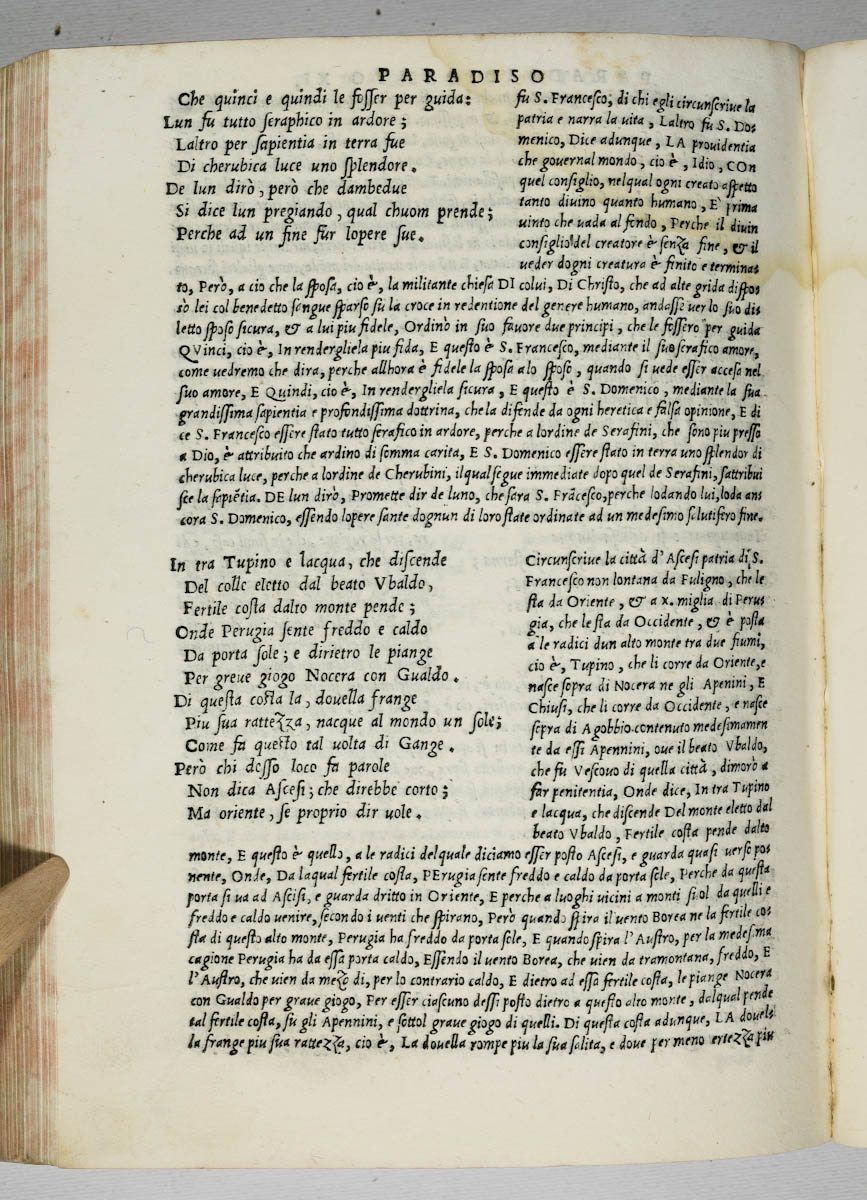 PARADISO
Che quinci e quindi le fosser per guida:
Lun fu tutto seraphico in ardore;
Laltro per sapientia in terra fue
Di cherubica luce uno splendore.
De lun dirò, però che dambedue
Si dice lun pregiando, qual chuom prende;
Perche ad un fine fur lopere sue.
fu S. Francesco, di chi egli circunscriue la
patria e narra la uita, Laltro fu S. Do=
menico, Dice adunque, LA prouidentia
che gouernal mondo, cio è, Idio, COn
quel consiglio, nelqual ogni creato aspetto
tanto diuino quanto humano, E prima
uinto che uada al fondo, Perche il diuin
consiglio del creatore è senza fine, & il
ueder dogni creatura è finito e termina=
to, Però, a cio che la sposa, cio è, la militante chiesa DI colui, Di Christo, che ad alte grida dispo=
sò lei col benedetto sangue sparso sù la croce in redentione del genere humano, andasse uer lo suo di=
letto sposo sicura, & a lui piu fidele, Ordinò in suo fauore due principi, che le fossero per guida
QVinci, cio è, In rendergliela piu fida, E questo è S. Francesco, mediante il suo serafico amore,
come uedremo che dira, perche allhora è fidele la sposa a lo sposo, quando si uede esser accesa nel
suo amore, E Quindi, cio è, In rendergliela sicura, E questo è S. Domenico, mediante la sua
grandissima sapientia e profondissima dottrina, che la difende da ogni heretica e falsa opinione, E di
ce S. Francesco essere stato tutto serafico in ardore, perche a lordine de Serafini, che sono piu presso
a Dio, è attribuito che ardino di somma carita, E S. Domenico essere stato in terra uno splendor di
cherubica luce, perche a lordine de Cherubini, ilqual segue immediate dopo quel de Serafini, sattribui
sce la sapiẽtia. DE lun dirò, Promette dir de luno, che sara S. Frãcesco, perche lodando lui, loda an=
cora S. Domenico, essendo lopere sante dognun di loro state ordinate ad un medesimo salutifero fine.
In tra Tupino e lacqua, che discende
Del colle eletto dal beato Vbaldo,
Fertile costa dalto monte pende;
Onde Perugia sente freddo e caldo
Da porta sole; e dirietro le piange
Per greue giogo Nocera con Gualdo.
Di questa costa la, douella frange
Piu sua rattezza, nacque al mondo un sole;
Come fa questo tal uolta di Gange.
Però chi desso loco fa parole
Non dica Ascesi; che direbbe corto;
Ma oriente, se proprio dir uole.
Circunscriue la città d'Ascesi patria di S.
Francesco non lontana da Fuligno, che le
sta da Oriente, & a x. miglia di Peru=
gia, che le sta da Occidente, & è posta
a le radici dun alto monte tra due fiumi,
cio è, Tupino, che li corre da Oriente, e
nasce sopra di Nocera ne gli Apenini, E
Chiusi, che li corre da Occidente, e nasce
sopra di Agobbio contenuto medesimamen
te da essi Apennini, oue il beato Vbaldo,
che fu Vescouo di quella città, dimorò a
far penitentia, Onde dice, In tra Tupino
e lacqua, che discende Del monte eletto dal
beato Vbaldo, Fertile costa pende dalto
monte, E questo è quello, a le radici delquale diciamo esser posto Ascesi, e guarda quasi uerso po=
nente, Onde, Da laqual fertile costa, PErugia sente freddo e caldo da porta sole, Perche da questa
porta si ua ad Ascisi, e guarda dritto in Oriente, E perche a luoghi uicini a monti suol da quelli e
freddo e caldo uenire, secondo i uenti che spirano, Però quando spira il uento Borea ne la fertile co=
sta di questo alto monte, Perugia ha freddo da porta sole, E quando spira l'Austro, per la medesima
cagione Perugia ha da essa porta caldo, Essendo il uento Borea, che uien da tramontana, freddo, E
l'Austro, che uien da mezo di, per lo contrario caldo, E dietro ad essa fertile costa, le piange Nocera
con Gualdo per graue giogo, Per esser ciascuno dessi posto dietro a questo alto monte, dalqual pende
tal fertile costa, su gli Apennini, e sottol graue giogo di quelli. Di questa costa adunque, LA douel=
la frange piu sua rattezza, cio è, La douella rompe piu la sua salita, e doue per meno ertezza piu